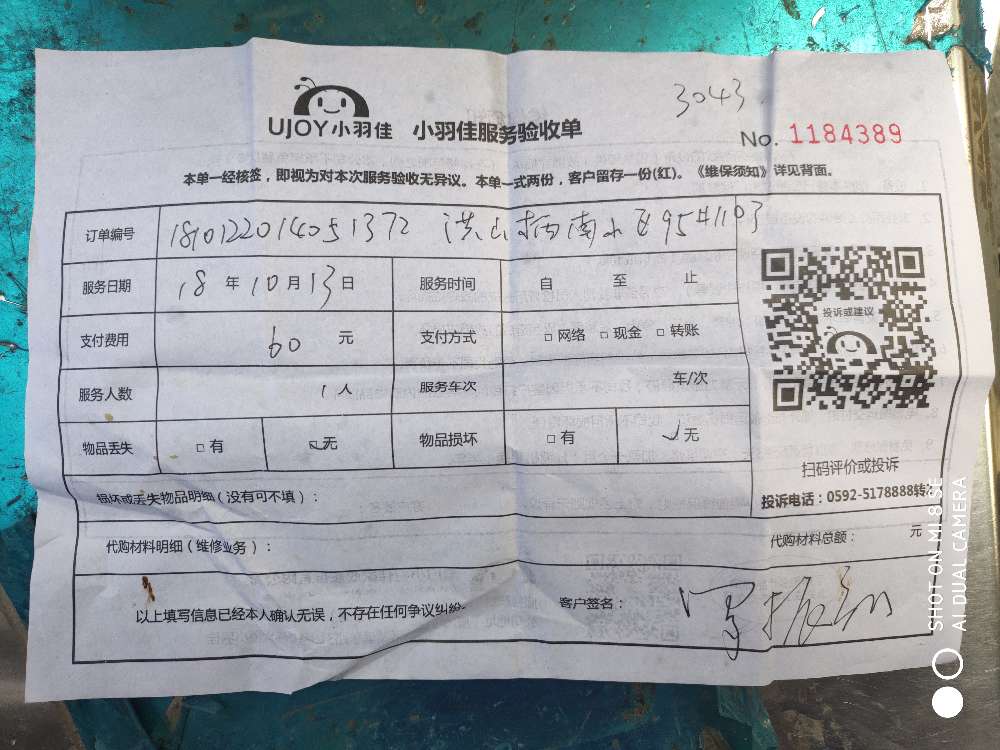 3043
UJOY小羽佳 小羽佳服务验收单
No. 1184389
本单一经核签，即视为对本次服务验收无异议。本单一式两份，客户留存一份(红)。《维保须知》详见背面。
订单编号 1810122014051372 洪山柄南小区95#1103
服务日期 18年10月13日 服务时间 自 至 止
支付费用 60 元 支付方式 □网络 □现金 □转账
服务人数 1人 服务车次 车/次
物品丢失 □有 ☑无 物品损坏 □有 ☑无
投诉或建议
扫码评价或投诉
投诉电话：0592-5178888转
损坏或丢失物品明细（没有可不填）：
代购材料明细（维修业务）： 代购材料总额： 元
以上填写信息已经本人确认无误，不存在任何争议纠纷 客户签名：
SHOT ON MI 8 SE
AI DUAL CAMERA